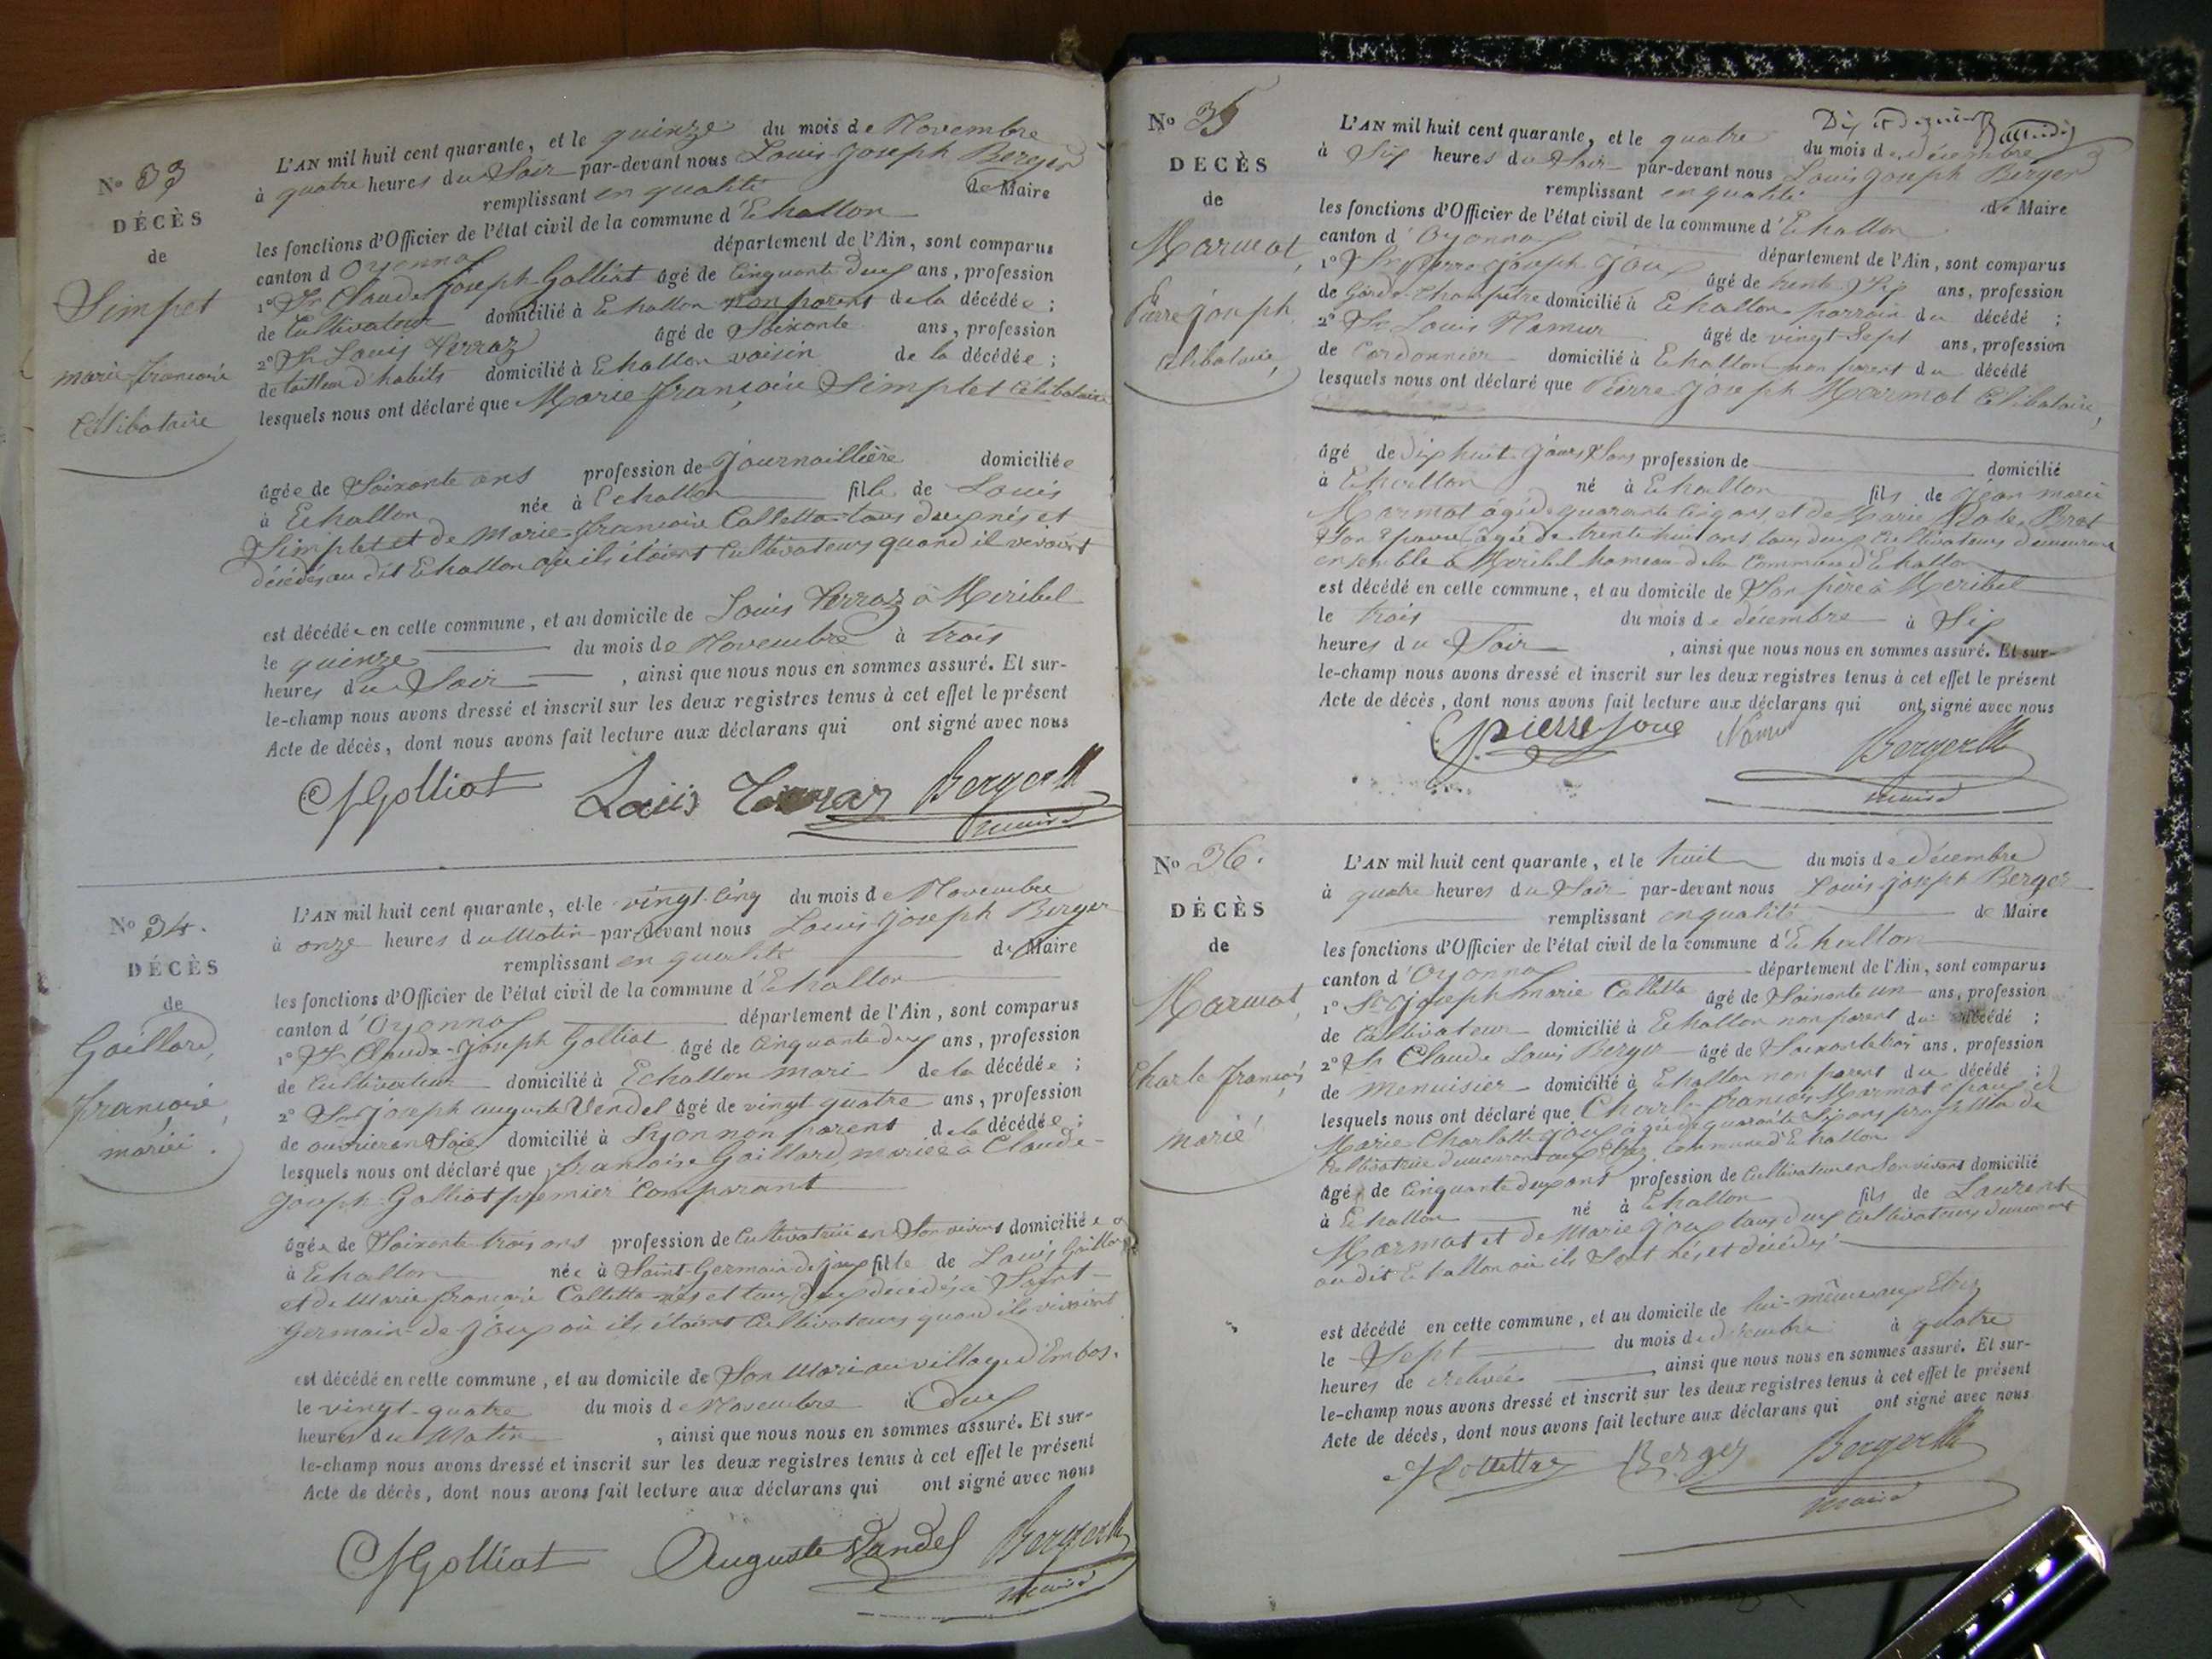 N° 33
DÉCÈS
de
Simplet
marie françoise
Célibataire
L'AN mil huit cent quarante, et le quinze du mois de Novembre
à quatre heures du Soir par-devant nous Louis Joseph Berger
remplissant en qualité de Maire
les fonctions d'Officier de l'état civil de la commune d'Echallon
canton d'Oyonnax département de l'Ain, sont comparus
1° Sr Claude Joseph Golliat âgé de Cinquante deux ans, profession
de Cultivateur domicilié à Echallon non parent de la décédée ;
2° Sr Louis Verraz âgé de Soixante ans, profession
de tailleur d'habits domicilié à Echallon voisin de la décédée ;
lesquels nous ont déclaré que Marie françoise Simplet Célibataire
âgée de Soixante ans profession de Journaillière domiciliée
à Echallon née à Echallon fille de Louis
Simplet et de Marie françoise Collette tous deux nés et
décédés au dit Echallon où ils étoient Cultivateurs quand il vivoient
est décédée en cette commune, et au domicile de Louis Verraz à Meribel
le quinze du mois de Novembre à trois
heures du Soir , ainsi que nous nous en sommes assuré. Et sur-
le-champ nous avons dressé et inscrit sur les deux registres tenus à cet effet le présent
Acte de décès, dont nous avons fait lecture aux déclarans qui ont signé avec nous
Golliat Louis Verraz Berger
maire
N° 34.
DÉCÈS
de
Gaillard,
françoise,
mariée.
L'AN mil huit cent quarante, et le vingt-cinq du mois de Novembre
à onze heures du Matin par-devant nous Louis Joseph Berger
remplissant en qualité de Maire
les fonctions d'Officier de l'état civil de la commune d'Echallon
canton d'Oyonnax département de l'Ain, sont comparus
1° Sr Claude-Joseph Golliat âgé de Cinquante deux ans, profession
de Cultivateur domicilié à Echallon mari de la décédée ;
2° Sr Joseph auguste Vandel âgé de vingt quatre ans, profession
de ouvrier en Soie domicilié à Lyon non parent de la décédée ;
lesquels nous ont déclaré que françoise Gaillard, mariée à Claude-
Joseph-Golliat premier Comparant
âgée de Soixante trois ans profession de Cultivatrice en Son vivant domiciliée
à Echallon née à Saint-Germain de Joux fille de Louis Gaillard
et de Marie françoise Collette nés et tous deux décédés à Saint-
Germain-de-Joux où ils étoient Cultivateurs quand ils vivoient
est décédé en cette commune, et au domicile de Son Mari au village d'Embos.
le vingt-quatre du mois de Novembre à deux
heures du Matin , ainsi que nous nous en sommes assuré. Et sur-
le-champ nous avons dressé et inscrit sur les deux registres tenus à cet effet le présent
Acte de décès, dont nous avons fait lecture aux déclarans qui ont signé avec nous
Golliat Auguste Vandel Berger
maire
N° 35
DÉCÈS
de
Marmot,
Pierre Joseph
Célibataire,
L'AN mil huit cent quarante, et le quatre du mois de décembre
à Six heures du Soir par-devant nous Louis Joseph Berger
remplissant en qualité de Maire
les fonctions d'Officier de l'état civil de la commune d'Echallon
canton d'Oyonnax département de l'Ain, sont comparus
1° Sr Pierre Joseph Joux âgé de trente Six ans, profession
de Garde-Champetre domicilié à Echallon parrain du décédé ;
2° Sr Louis Namur âgé de vingt Sept ans, profession
de Cordonnier domicilié à Echallon non parent du décédé
lesquels nous ont déclaré que Pierre Joseph Marmot Célibataire,
âgé de dix huit Jours Sans profession de domicilié
à Echallon né à Echallon fils de Jean marie
Marmot âgé de quarante Cinq ans, et de Marie Rose Brot
Son Epouse âgée de trente huit ans tous deux Cultivateurs demeurant
ensemble à Meribel hameau de la Commune d'Echallon
est décédé en cette commune, et au domicile de Son père à Meribel
le trois du mois de décembre à Six
heures du Soir , ainsi que nous nous en sommes assuré. Et sur-
le-champ nous avons dressé et inscrit sur les deux registres tenus à cet effet le présent
Acte de décès, dont nous avons fait lecture aux déclarans qui ont signé avec nous
pierre Joux Namur Berger
maire
N° 36.
DÉCÈS
de
Marmot,
Charle françois
marié
L'AN mil huit cent quarante, et le huit du mois de décembre
à quatre heures du Soir par-devant nous Louis Joseph Berger
remplissant en qualité de Maire
les fonctions d'Officier de l'état civil de la commune d'Echallon
canton d'Oyonnax département de l'Ain, sont comparus
1° Sr Joseph Marie Collette âgé de Soixante un ans, profession
de Cultivateur domicilié à Echallon non parent du décédé ;
2° Sr Claude Louis Berger âgé de Soixante trois ans, profession
de Menuisier domicilié à Echallon non parent du décédé ;
lesquels nous ont déclaré que Charle françois Marmot époux de
Marie Charlotte Joux âgée de quarante Six ans profession de
Cultivatrice demeurant aux Etrez Commune d'Echallon
âgé de Cinquante deux ans profession de Cultivateur en Son vivant domicilié
à Echallon né à Echallon fils de Laurent
Marmot et de Marie Joux tous deux Cultivateurs demeurant
au dit Echallon où ils Sont nés et décédés
est décédé en cette commune, et au domicile de lui-même aux Etrez
le Sept du mois de décembre à quatre
heures de relevée , ainsi que nous nous en sommes assuré. Et sur-
le-champ nous avons dressé et inscrit sur les deux registres tenus à cet effet le présent
Acte de décès, dont nous avons fait lecture aux déclarans qui ont signé avec nous
Collette Berger Berger
maire